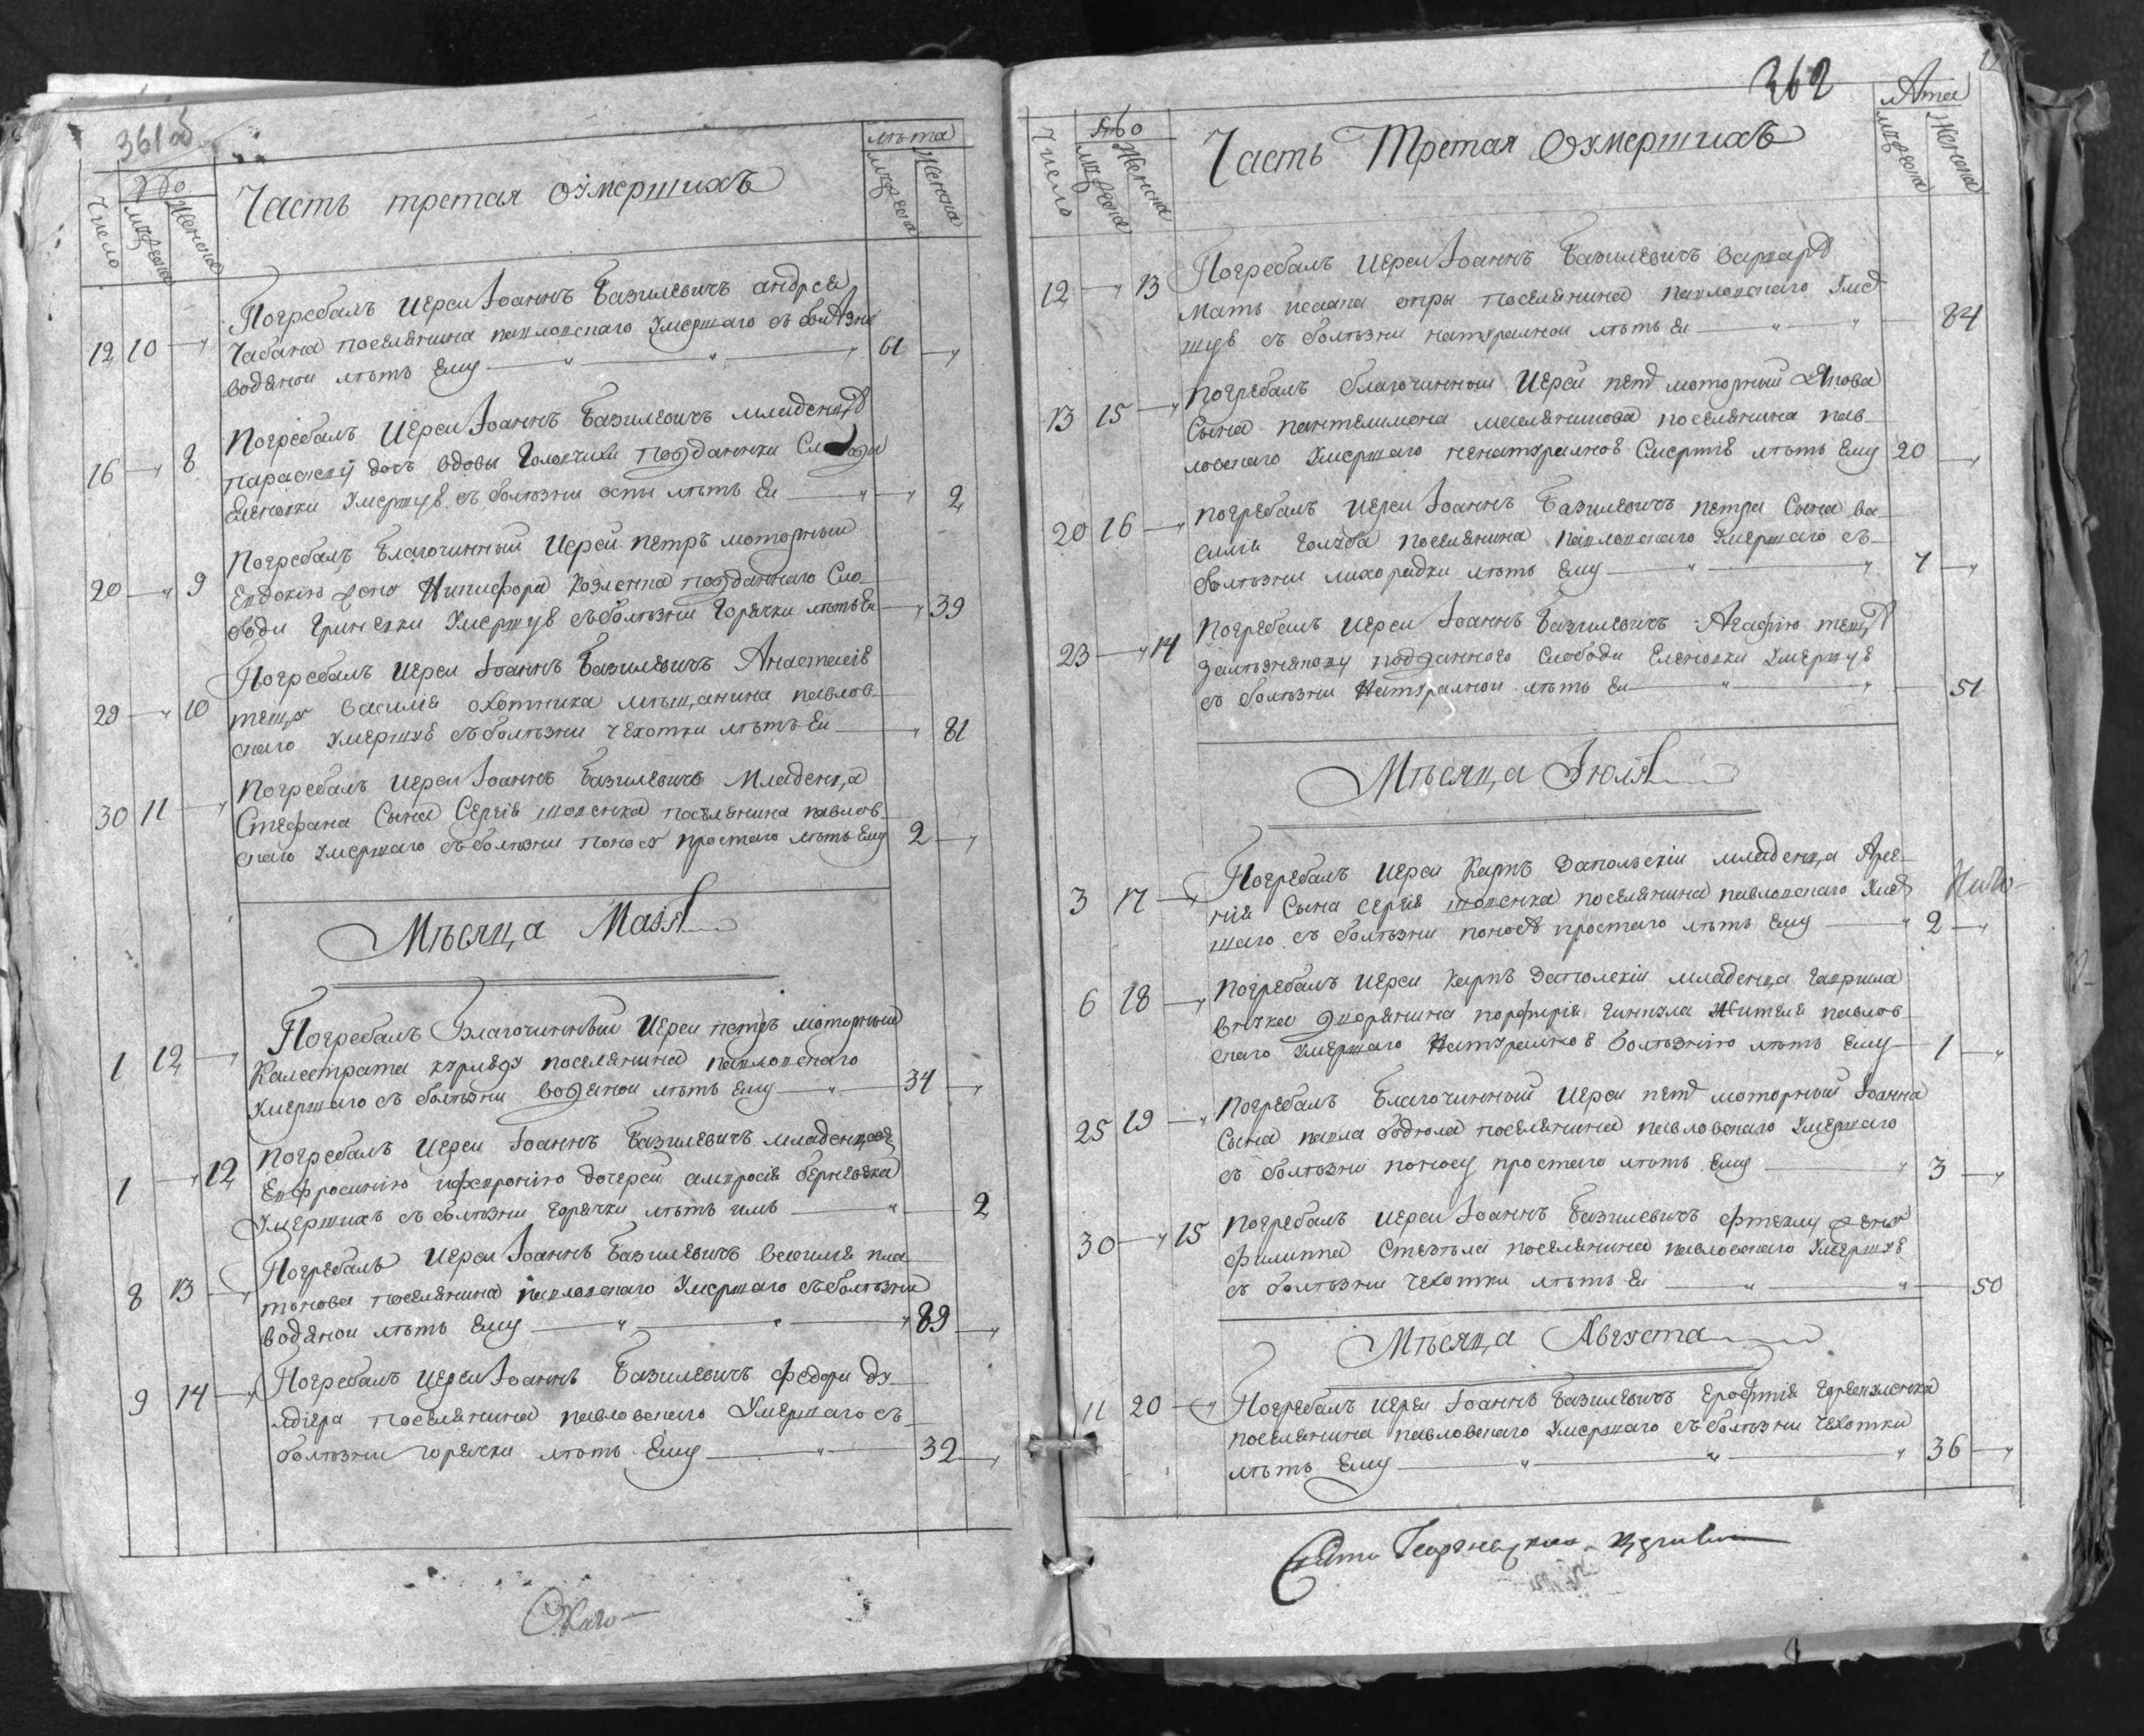 361об
Число
мужеска
женска
Часть третая оумершихъ
лѣта
мужеска
женска
12 10 Погребалъ Иереи Іоаннъ Базилевичъ андрея
Чабана поселянина павловскаго Умершаго съ болѣзни
водяной лѣтъ Ему 61
16 8 Погребалъ Иереи Іоаннъ Базилевичъ младенца
параскеву дочь вдовы подданики
Еленовки Умершую съ болѣзни оспы лѣтъ Еи 2
20 9 Погребалъ Благочинный Иерей Петръ моторный
Евдокию жену Никифора Козленка подданнаго Сло-
боди Гриневки Умершую съ болѣзни Горячки лѣтъ Еи 39
29 10 Погребалъ Иереи Іоаннъ Базилевичъ Анастасію
тещу Василія охотника мѣщанина павлов-
скаго Умершую съ болѣзни чехотки лѣтъ Еи 81
30 11 Погребалъ Иереи Іоаннъ Базилевичъ Младенца
Стефана Сына Сергія поселянина павлов-
скаго Умершаго съ болѣзни поносу простаго лѣтъ Ему 2
Мѣсяца Маія
1 12 Погребалъ Благочинный Иереи петръ моторный
Калистрата поселянина павловскаго
Умершаго съ болѣзни водяной лѣтъ Ему 34
1 12 Погребалъ Иереи Іоаннъ Базилевичъ младенцовъ
Евфросинію дочерей амвросія
Умершихъ съ болѣзни Горячки лѣтъ имъ 2
8 13 Погребалъ Иереи Іоаннъ Базилевичъ василія пла-
тонова поселянина павловскаго Умершаго съ болѣзни
водяной лѣтъ Ему 89
9 14 Погребалъ Иереи Іоаннъ Базилевичъ федора
поселянина павловскаго Умершаго съ
болѣзни горячки лѣтъ Ему 32
362
Число
мужеска
женска
Часть Третая Оумершихъ
лѣта
мужеска
женска
12 13 Погребалъ Иереи Іоаннъ Базилевичъ варвару
Мать исаака поселянина павловскаго Умер
шую съ болѣзни натуралной лѣтъ Еи 84
13 15 Погребалъ благочинныи Иереи петръ моторный Якова
Сына пантелимона поселянина пав-
ловскаго Умершаго ненатуралною Смертію лѣтъ Ему 20
20 16 погребалъ Иереи Іоаннъ Базилевичъ петра Сына ва-
силія Голуба поселянина павловскаго Умершаго съ
болѣзни лихорадки лѣтъ Ему 7
23 14 Погребалъ Иереи Іоаннъ Базилевичъ Агафію тещу
подданного Слободи Еленовки Умершую
съ болѣзни Натуралной лѣтъ Еи 51
Мѣсяца Іюля
3 17 Погребалъ Иереи Карпъ младенца
Сына Сергія поселянина павловскаго Умер
шаго съ болѣзни поносу простаго лѣтъ Ему 2
6 18 Погребалъ Иереи Карпъ младенца гавриила
внука дворянина порфирія жителя павлов
скаго Умершаго Натуралною болѣзнію лѣтъ Ему 1
25 19 Погребалъ Благочинный Иереи петръ моторный Іоанна
Сына павла поселянина павловскаго Умершаго
съ болѣзни поносу простаго лѣтъ Ему 3
30 15 Погребалъ Иереи Іоаннъ Базилевичъ жену
филиппа поселянина павловскаго Умершую
съ болѣзни чехотки лѣтъ Еи 50
Мѣсяца Августа
11 20 Погребалъ Иереи Іоаннъ Базилевичъ
поселянина павловскаго Умершаго съ болѣзни чехотки
лѣтъ Ему 36